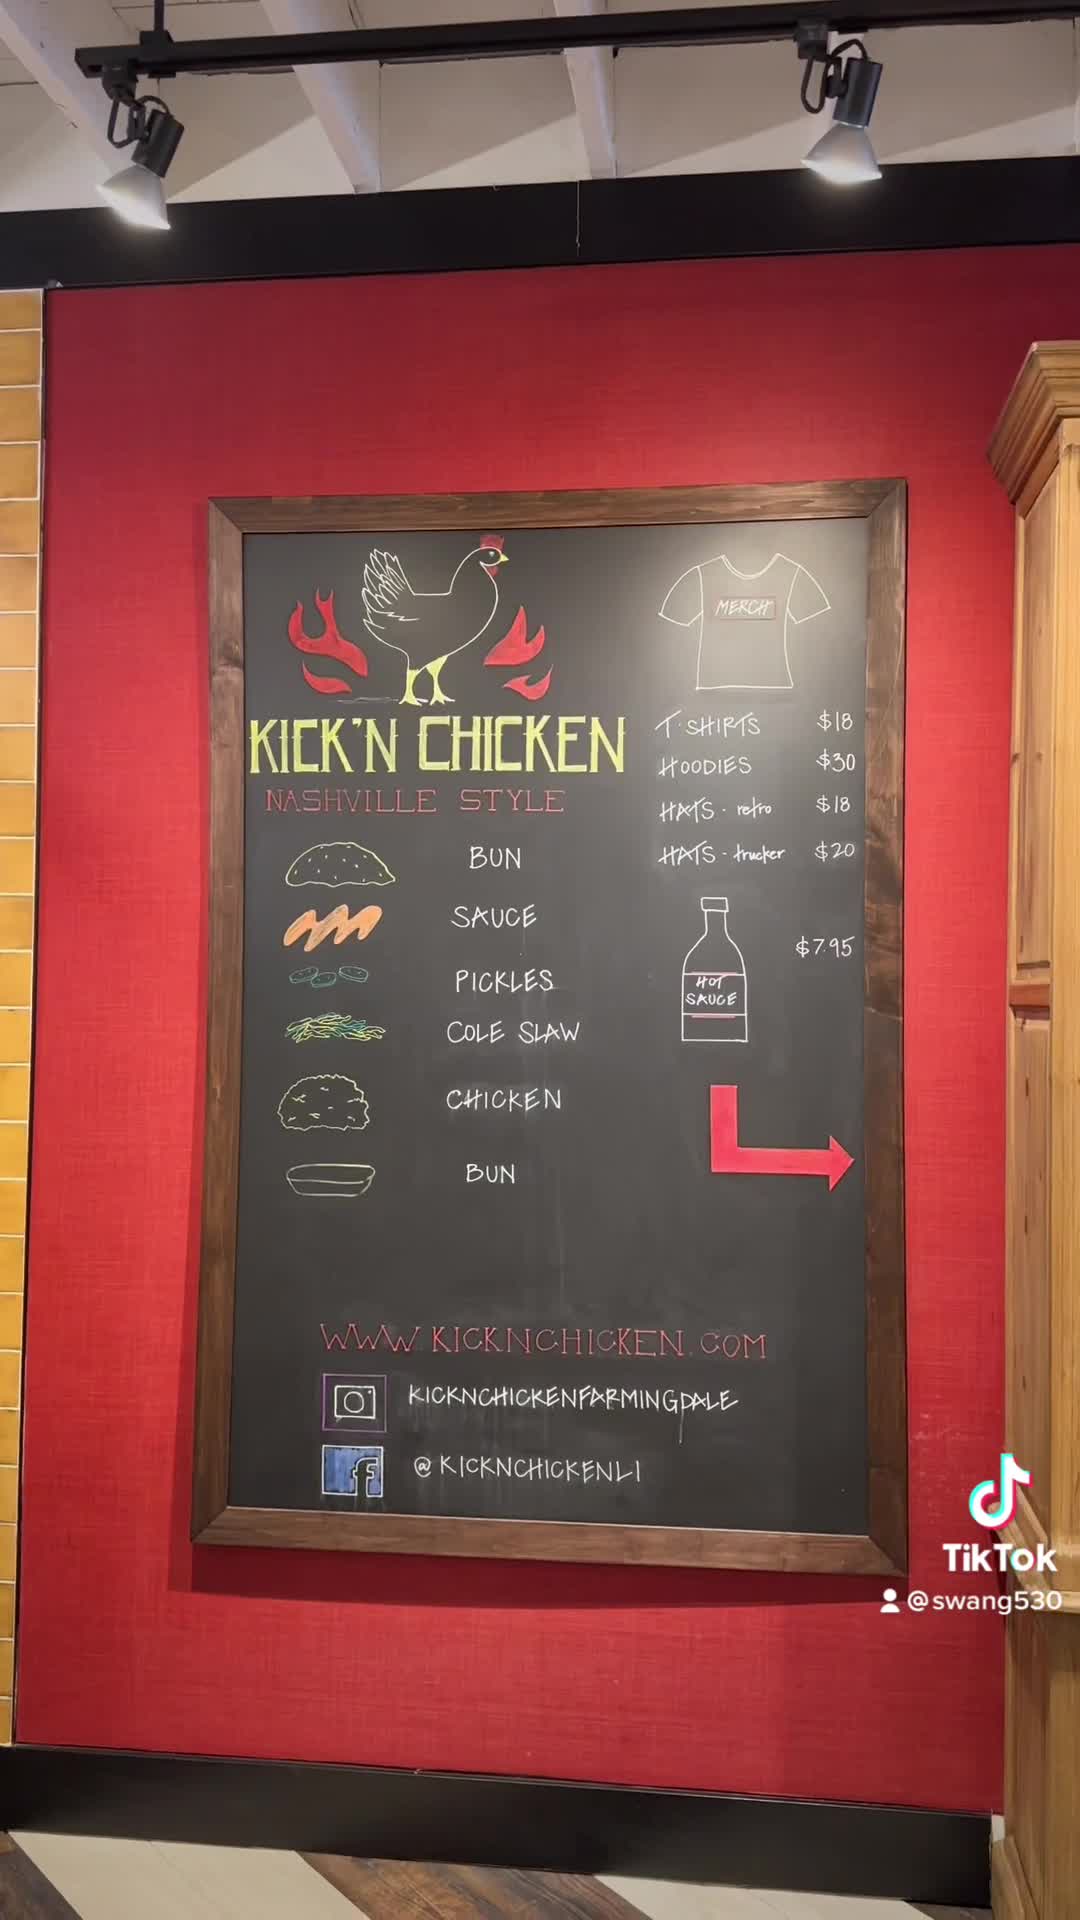 KICK'N CHICKEN
NASHVILLE STYLE
BUN
SAUCE
PICKLES
COLE SLAW
CHICKEN
BUN
MERCH
T-SHIRTS $18
HOODIES $30
HATS - retro $18
HATS - trucker $20
HOT
SAUCE
$7.95
WWW.KICKNCHICKEN.COM
KICKNCHICKENFARMINGDALE
f
@KICKNCHICKENLI
TikTok
@swang530